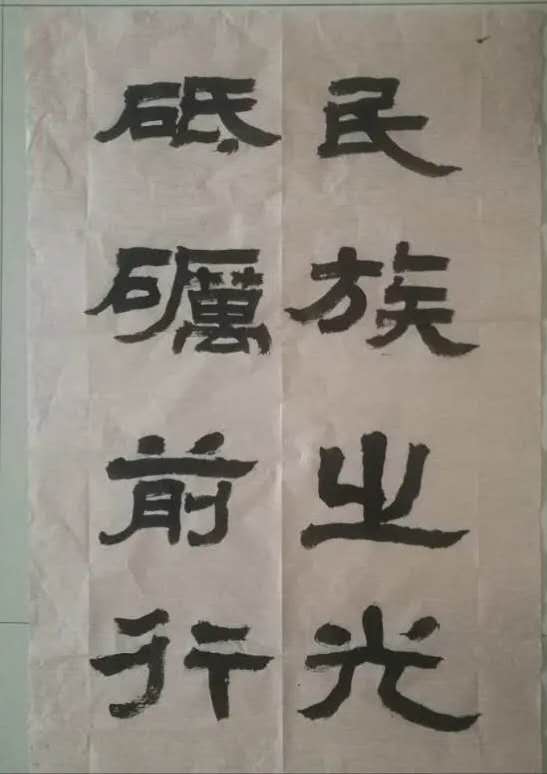 民族之光
砥礪前行